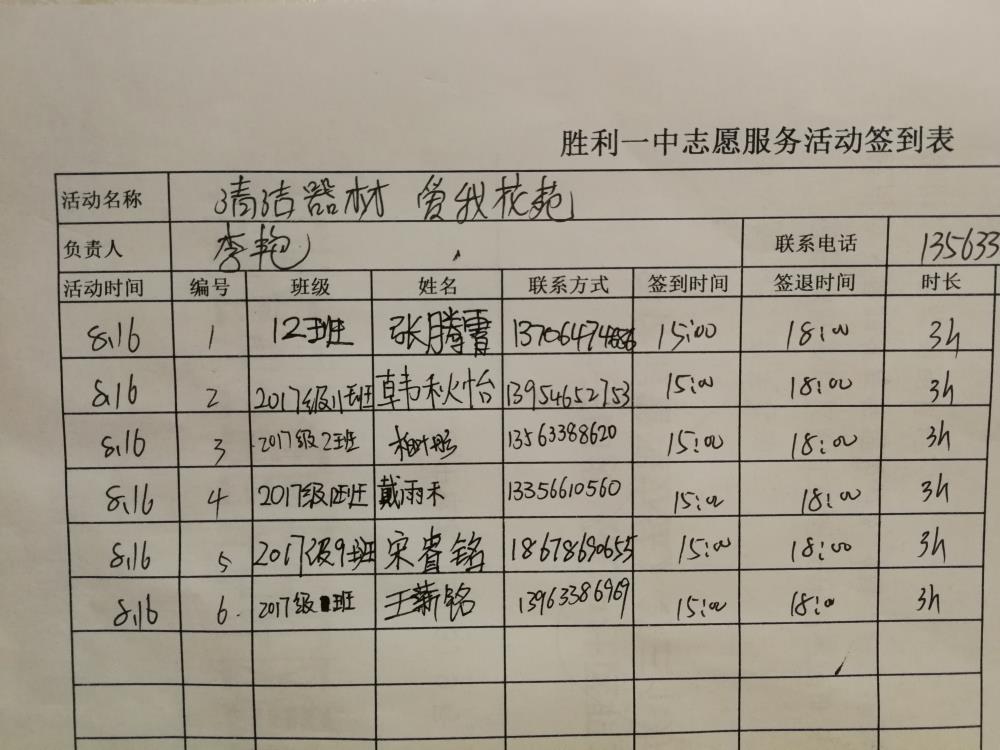 胜利一中志愿服务活动签到表
活动名称 清洁器材 爱我花苑
负责人 李艳 联系电话 135633
活动时间 编号 班级 姓名 联系方式 签到时间 签退时间 时长
8.16 1 12班 张腾霄 13706474 15:00 18:00 3h
8.16 2 2017级11班 韩秋怡 13954652753 15:00 18:00 3h
8.16 3 2017级2班 13563388620 15:00 18:00 3h
8.16 4 2017级 班 戴雨禾 13356610560 15:00 18:00 3h
8.16 5 2017级9班 宋睿铭 18678690655 15:00 18:00 3h
8.16 6. 2017级 班 王薪铭 13963386969 15:00 18:00 3h